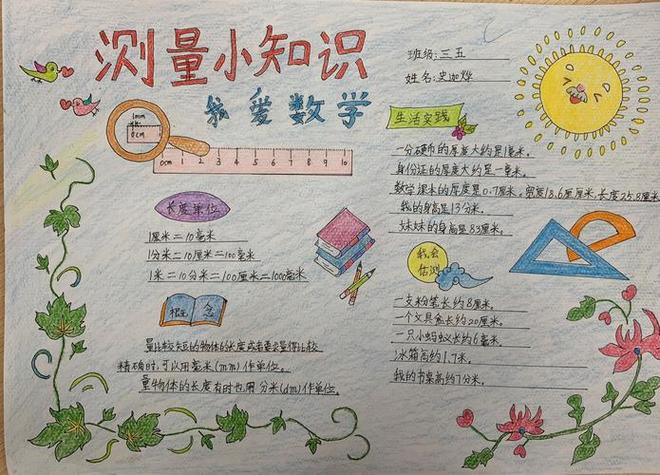 测量小知识
我爱数学
班级:三五
姓名:史迦烨
1mm
0cm
0cm 1 2 3 4 5 6 7 8 9 10
长度单位
1厘米=10毫米
1分米=10厘米=100毫米
1米=10分米=100厘米=1000毫米
概念
量比较短的物体的长度或者要求量得比较
精确时,可以用毫米(mm)作单位。
量物体的长度有时也用分米(dm)作单位。
生活实践
一分硬币的厚度大约是1毫米。
身份证的厚度大约是一毫米。
数学课本的厚度是0.7厘米,宽度18.6厘米,长度25.8厘米
我的身高是13分米。
妹妹的身高是83厘米。
我会估测
一支粉笔长约8厘米。
一个文具盒长约20厘米。
一只小蚂蚁长约6毫米。
冰箱高约1.7米。
我的书桌高约7分米。